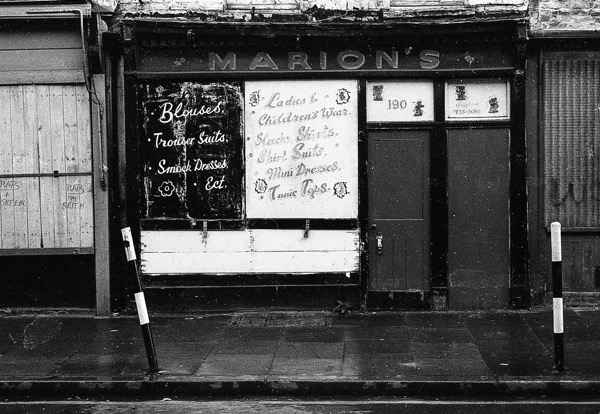 MARION'S
Blouses.
Trouser Suits.
Smock Dresses.
Ect.
Ladies &
Children's Wear.
Slacks Skirts.
Skirt Suits.
Mini Dresses.
Tunic Tops.
190
BABS
+
BABS
KEITH